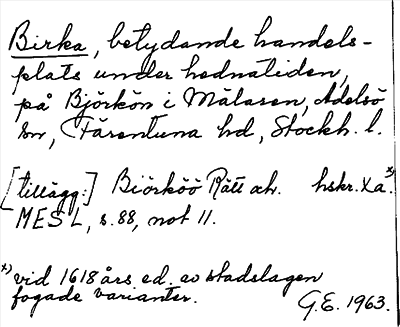 Birka, betydande handels-
plats under hednatiden,
på Björkön i Mälaren, Adelsö
sn, Färentuna hd, Stockh. l.
[tillägg:] Biörköö Rätt hskr. Xa.*)
MESL, s. 88, not 11.
*) vid 1618 års ed. av stadslagen
fogade varianter.
G.E. 1963.